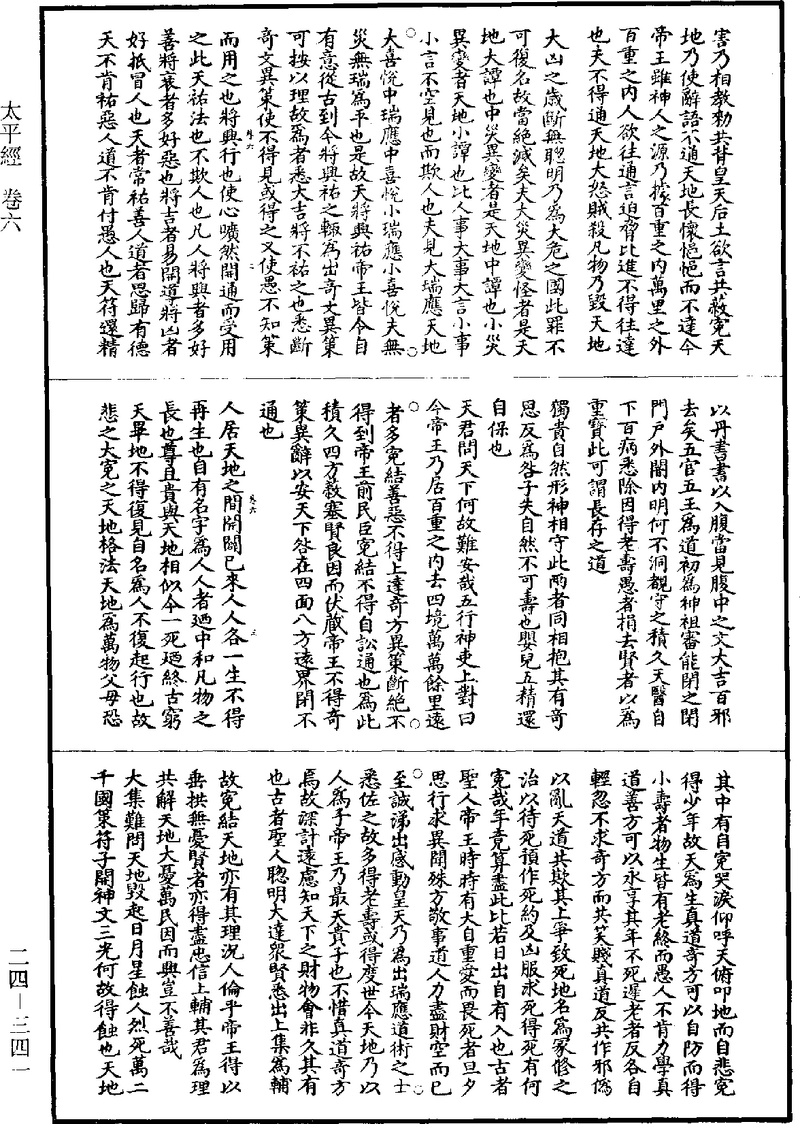 太平經 卷六
二四—三四一
害乃相教勑共背皇天后土欲言共蔽冤天
地乃使辭語不通天地長懷悒悒而不達今
帝王雖神人之源乃據百重之內萬里之外
百重之內人欲往通言迫脅比進不得往達
也夫不得通天地大怒賊殺凡物乃毀天地
大凶之歲斷無聰明乃為大危之國此罪不
可復名故當絕滅矣夫大災異變怪者是天
地大譚也中災異變者是天地中譚也小災
異變者天地小譚也比人事大事大言小事
小言不空見也而欺人也夫見大瑞應天地
大喜悅中瑞應中喜悅小瑞應小喜悅夫無
災無瑞為平也是故天將興祐帝王皆令自
有意從古到今將興祐之輒為出奇文異策
可按以理故為者悉大吉將不祐之也悉斷
奇文異策使不得見或得之又使愚不知策
卷六 二
而用之也將興行也使心曠然開通而受用
之此天祐法也不欺人也凡人將興者多好
善將衰者多好惡也將吉者易開導將凶者
好抵冒人也天者常祐善人道者思歸有德
天不肯祐惡人道不肯付愚人也天符還精
以丹書書以入腹當見腹中之文大吉百邪
去矣五官五王為道初為神祖審能閉之閉
門戶外闇內明何不洞覩守之積久天醫自
下百病悉除因得老壽愚者捐去賢者以為
重寶此可謂長存之道
獨貴自然形神相守此兩者同相抱其有奇
思反為咎子失自然不可壽也嬰兒五精還
自保也
天君問天下何故難安哉五行神吏上對曰
今帝王乃居百重之內去四境萬萬餘里遠
者多冤結善惡不得上達奇方異策斷絕不
得到帝王前民臣冤結不得自訟通也為此
積久四方蔽塞賢良因而伏藏帝王不得奇
策異辭以安天下咎在四面八方遠界閉不
通也
卷六 三
人居天地之間開闢已來人人各一生不得
再生也自有名字為人人者迺中和凡物之
長也尊且貴與天地相似今一死迺終古窮
天畢地不得復見自名為人不復起行也故
悲之大冤之天地格法天地為萬物父母恐
其中有自冤哭淚仰呼天俯叩地而自悲冤
得少年故天為生真道奇方可以自防而得
小壽者物生皆有老終而愚人不肯力學真
道善方可以永享其年不死遲老者反各自
輕忽不求奇方而共笑賤真道反共作邪偽
以亂天道共欺其上爭致死地名為冢修之
治以待死預作死約及凶服求死得死有何
冤哉年竟算盡此比若日出自有入也古者
聖人帝王時時有大自重愛而畏死者旦夕
思行求異聞殊方敬事道人力盡財空而已
至誠涕出感動皇天乃為出瑞應道術之士
悉佐之故多得老壽或得度世今天地乃以
人為子帝王乃最天貴子也不惜真道奇方
焉故深計遠慮知天下之財物會非久其有
也古者聖人聰明大達眾賢悉出上集為輔
故冤結天地亦有其理況人倫乎帝王得以
垂拱無憂賢者亦得盡忠信上輔其君為理
共解天地大憂萬民因而興豈不善哉
大集難問天地毀起日月星蝕人烈死萬二
千國策符子開神文三光何故得蝕也天地